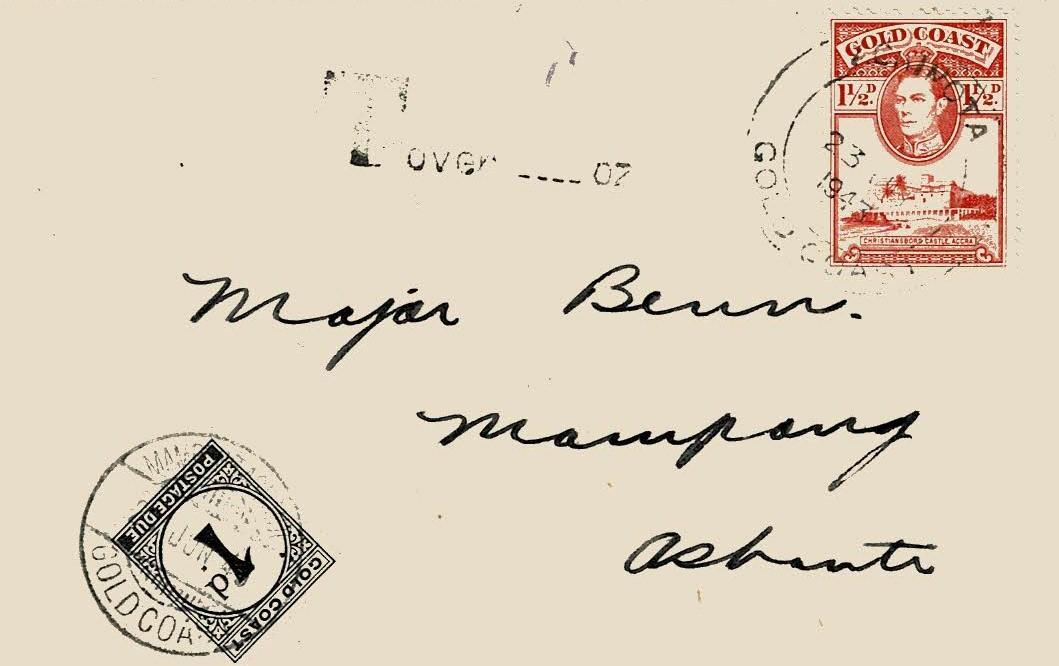 GOLD COAST
1½D. 1½D.
CHRISTIANSBORG CASTLE ACCRA
23
1943
GOLD COAST
T over ---- oz
Major Benn.
Mampong
Ashante
POSTAGE DUE
1d.
GOLD COAST
JUN
GOLD COA